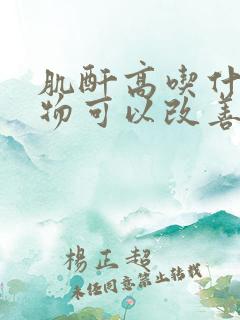 肌酐高喫什
物可以改善
楊正超
未經同意禁止轉載